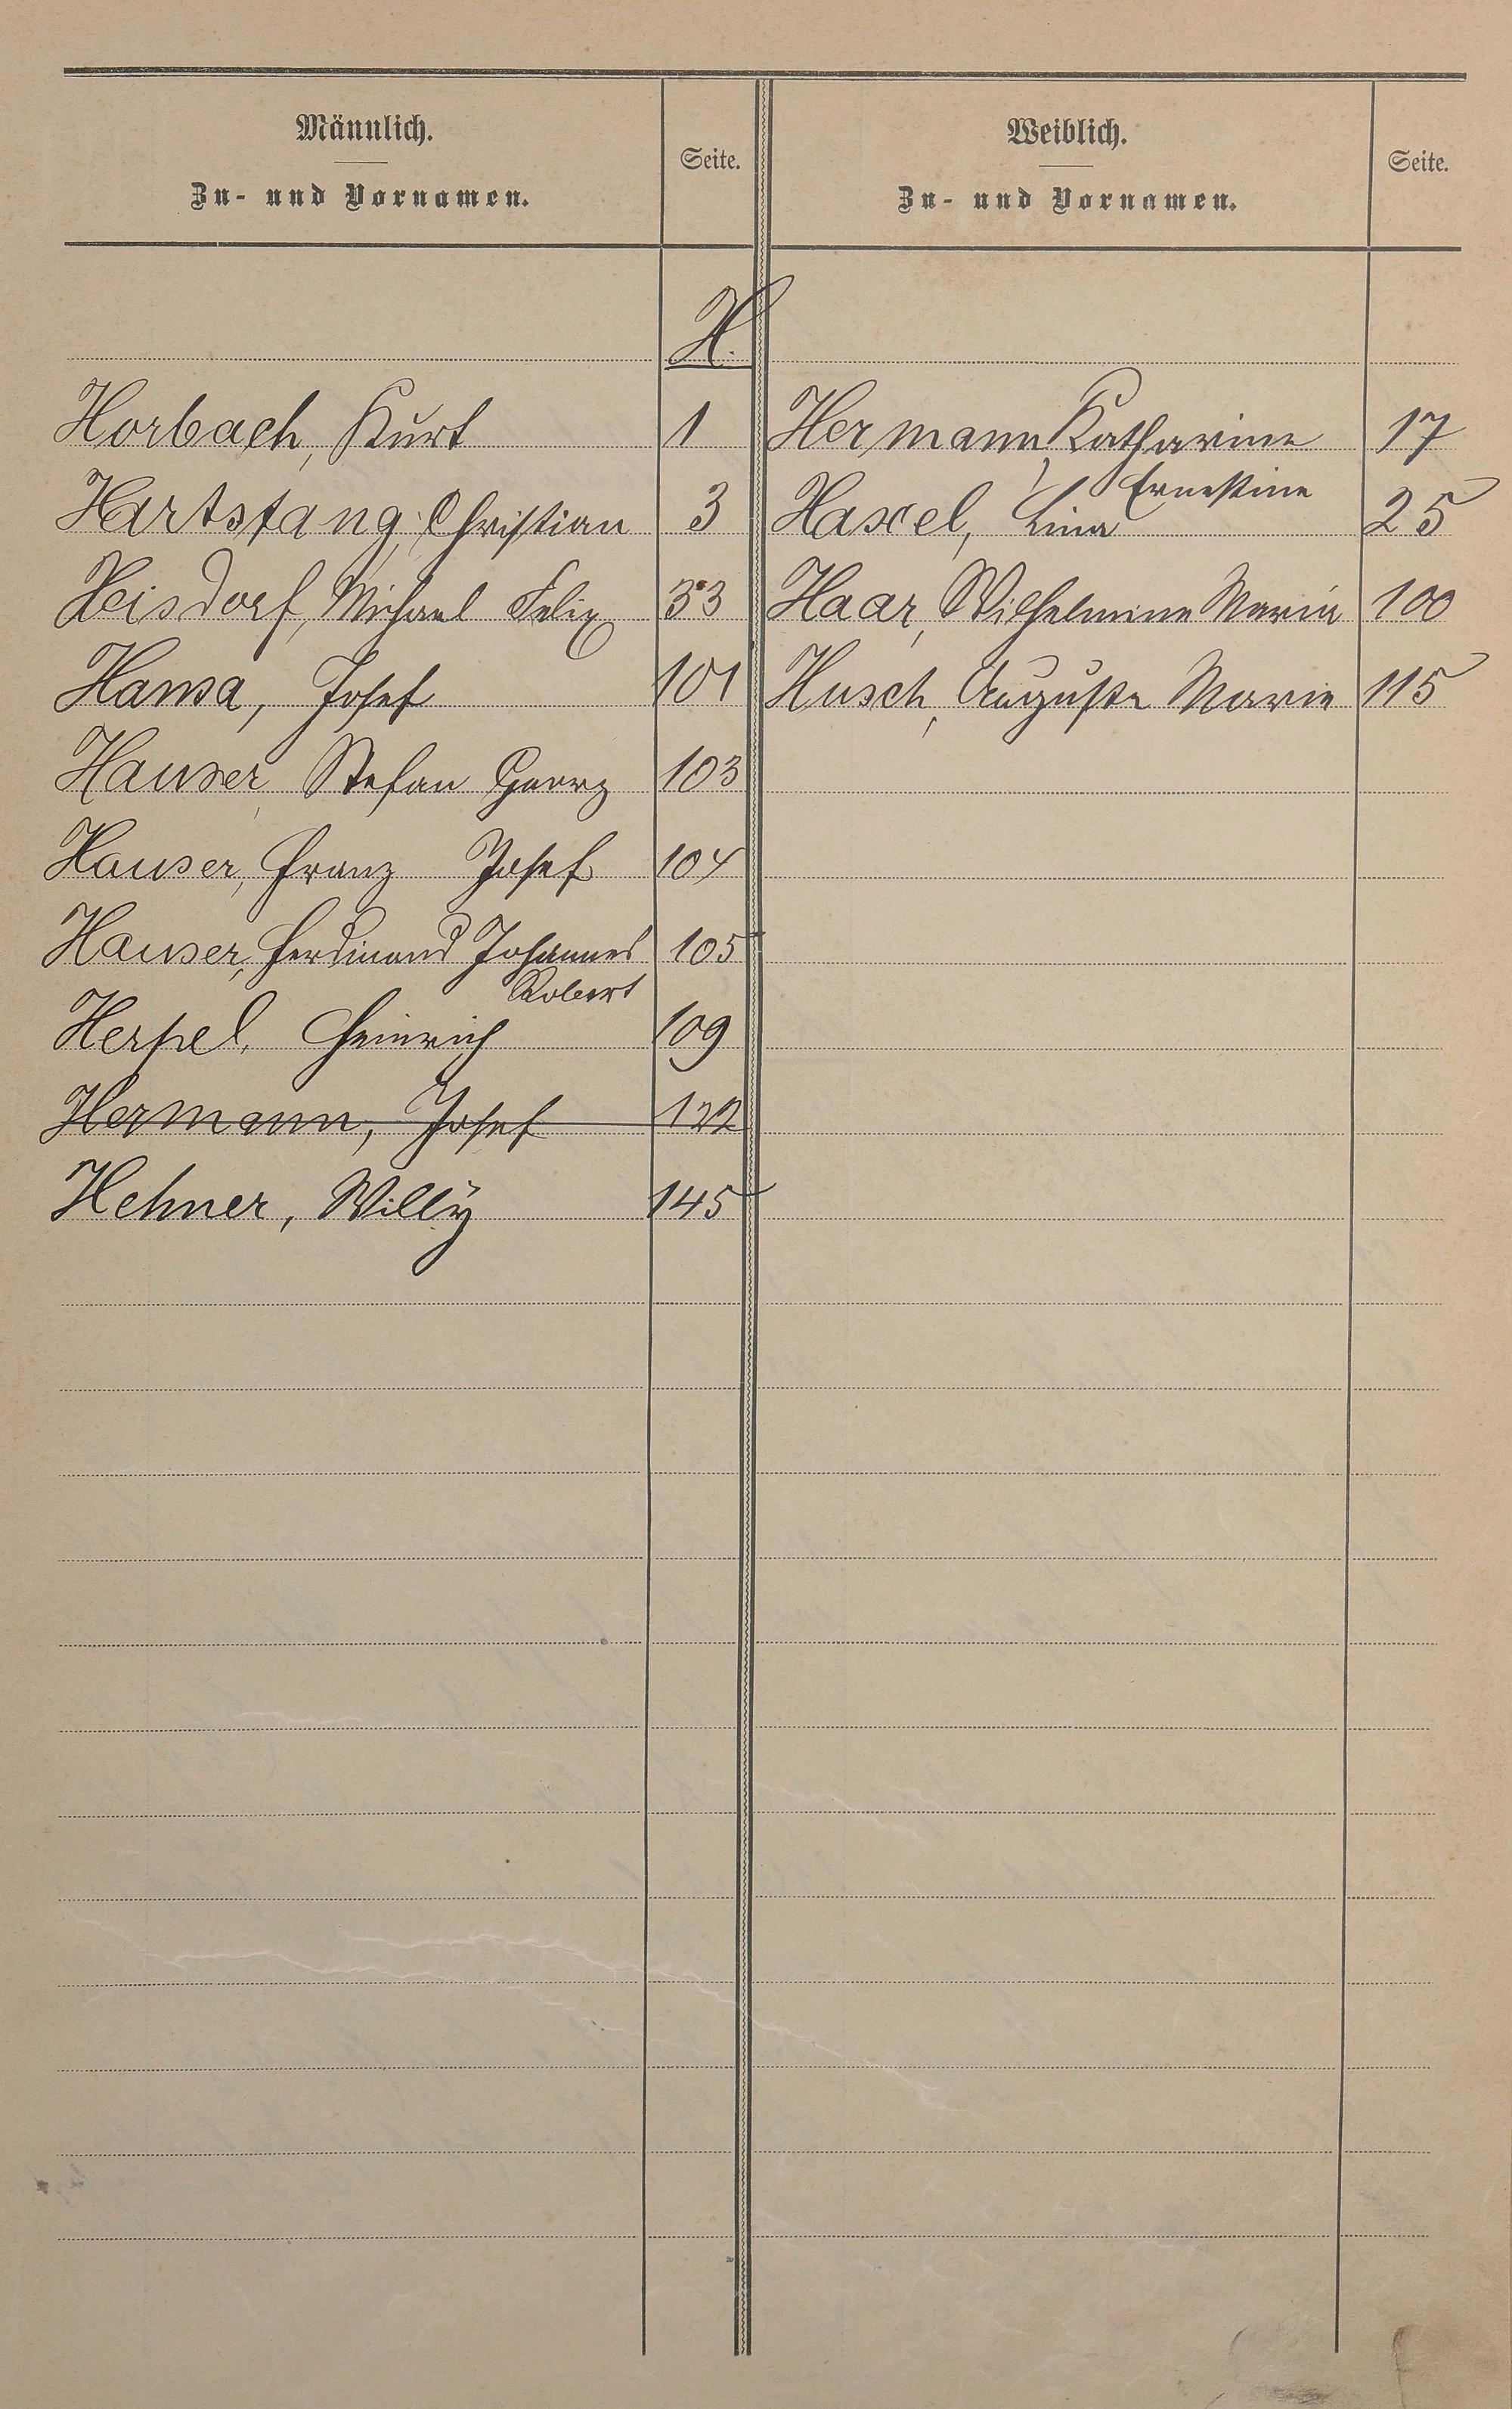 Männlich.
Zu- und Vornamen.
Seite.
Weiblich.
Zu- und Vornamen.
Seite.
H.
Horbach, Kurt 1
Hartstang, Christian 3
Heisdorf, Michael Felix 33
Hansa, Josef 101
Hauser, Stefan Georg 103
Hauser, Franz Josef 104
Hauser, Ferdinand Johannes 105
Robert
Herpel, Heinrich 109
Hermann, Josef 122
Hehner, Willy 145
Hermann, Katharine 17
Ernestine
Haxel, Lina 25
Haar, Wilhelmine Maria 100
Husch, Auguste Marie 115